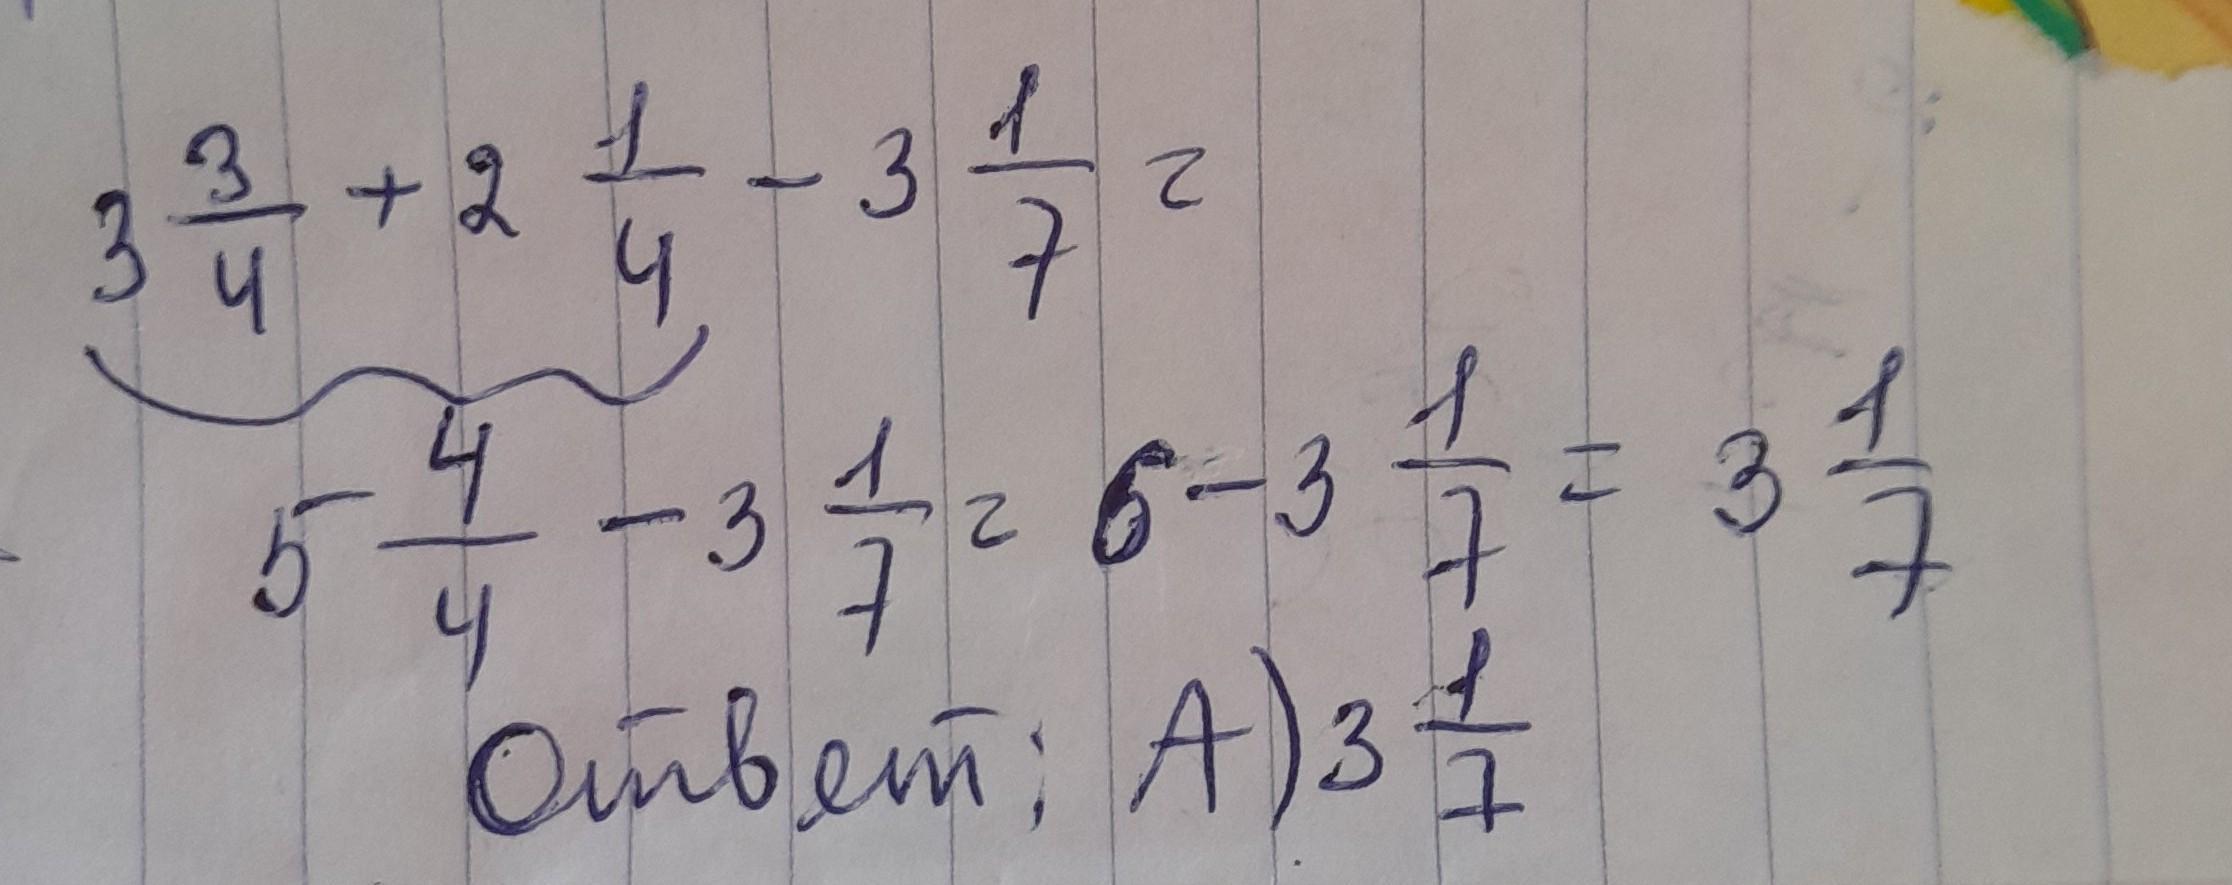 3 3/4 + 2 1/4 - 3 1/7 =
5 4/4 - 3 1/7 = 6 - 3 1/7 = 3 1/7
Ответ: А) 3 1/7